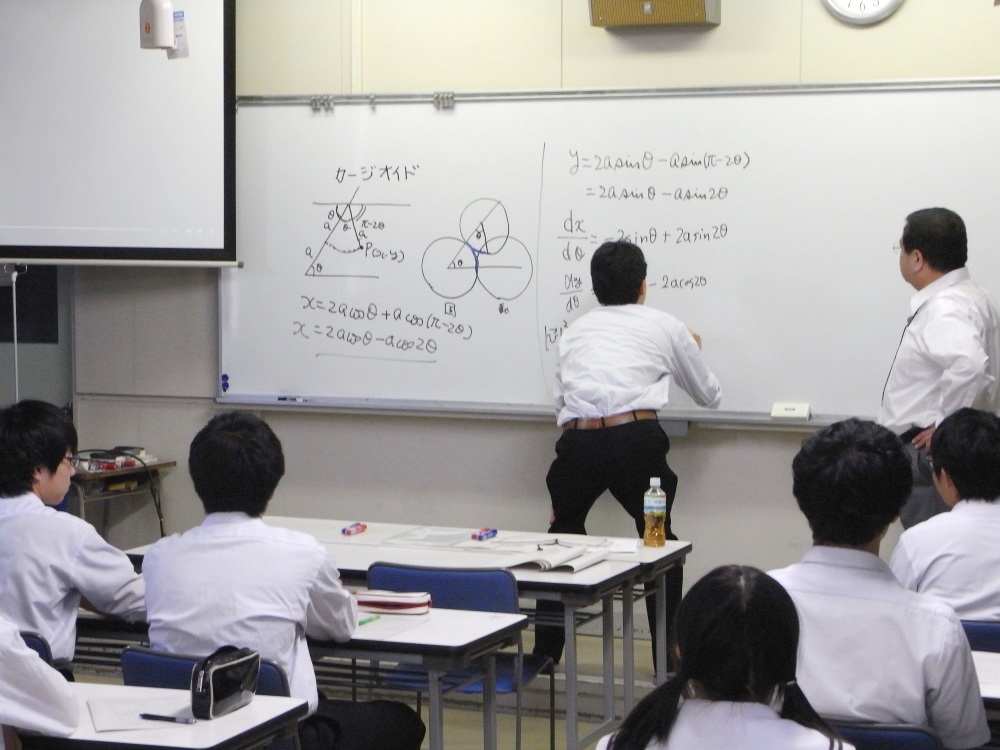 カージオイド
θ
θ
π-2θ
a
a
P(x,y)
a
θ
θ
θ
x=2acosθ+acos(π-2θ)
x=2acosθ-acos2θ
y=2asinθ-asin(π-2θ)
=2asinθ-asin2θ
dx/dθ=-2asinθ+2asin2θ
dy/dθ
-2acos2θ